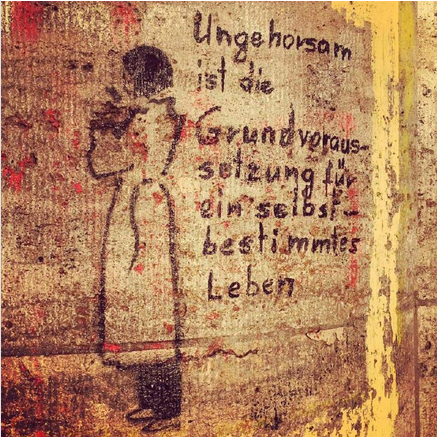 Ungehorsam
ist die
Grundvoraus-
setzung für
ein selbst-
bestimmtes
Leben